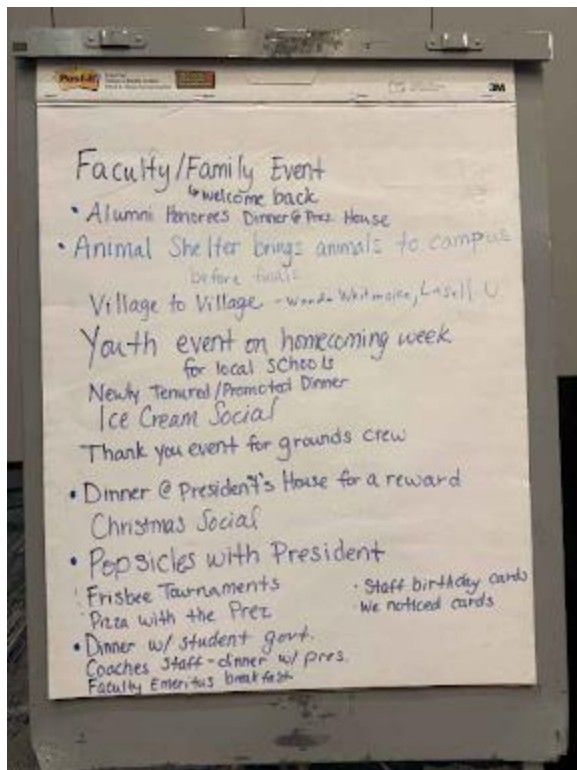 Post-it
3M
Faculty/Family Event
↳ welcome back
• Alumni Honorees Dinner @ Prez House
• Animal Shelter brings animals to campus
before finals
Village to Village - Wanda Whitmore, Lasell U
Youth event on homecoming week
for local schools
Newly Tenured/Promoted Dinner
Ice Cream Social
Thank you event for grounds crew
• Dinner @ President's House for a reward
Christmas Social
• Popsicles with President
Frisbee Tournaments
Pizza with the Prez
• Staff birthday cards
• We noticed cards
• Dinner w/ student govt.
Coaches Staff - dinner w/ pres.
Faculty Emeritus breakfast